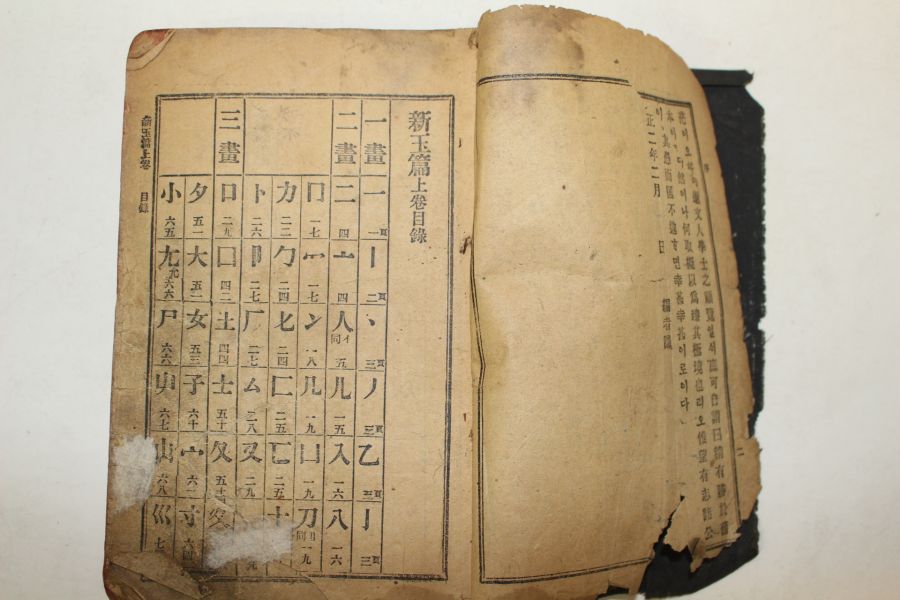 序
二
文人學士之
然이나何取擬以爲
其愚而匡不逮ᄒ면幸甚幸甚이로이다
正二年二月 日 編者識
新玉篇上卷目錄
一畫 一 一頁 丨 二頁 丶 三頁 丿 三頁 乙 三頁 亅 三頁
二畫 二 四 亠 四 人 亻同 五 儿 一五 入 一六 八 一六
冂 一七 冖 一七 冫 一八 几 一九 凵 一九 刀 刂同 一九
力 二二 勹 二四 匕 二四 匚 二五 匸 二五 十
卜 二六 卩 二七 厂 二七 厶 二八 又 二九
三畫 口 二九 囗 四二 土 四四 士 五十 夂 五十 夊
夕 五一 大 五一 女 五三 子 六十 宀 六一 寸
小 六五 尢 尤 六六 尸 六六 屮 六七 山 六八 巛 七
新玉篇上卷 目錄